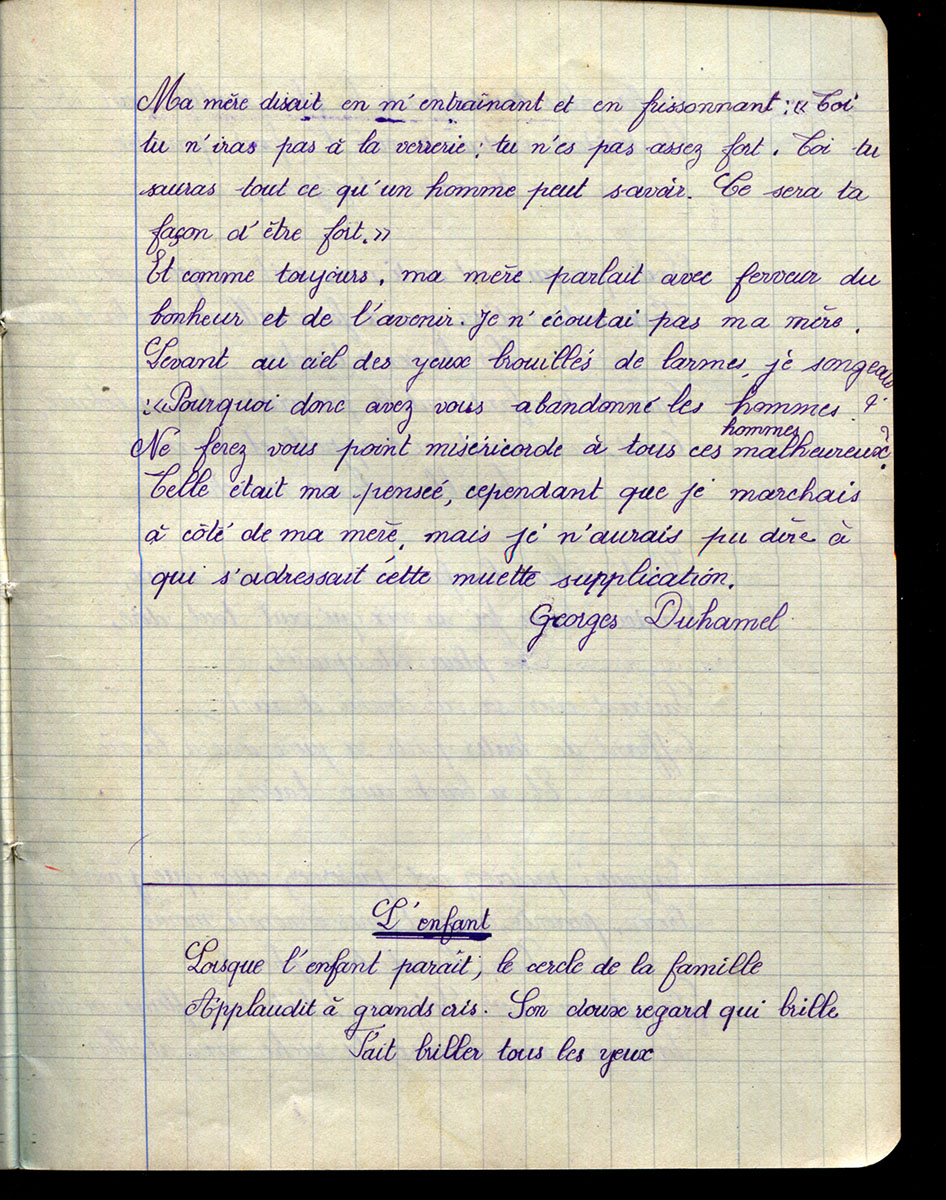 Ma mère disait en m'entraînant et en frissonnant : « Toi
tu n'iras pas à la verrerie ; tu n'es pas assez fort. Toi tu
sauras tout ce qu'un homme peut savoir. Ce sera ta
façon d'être fort. »
Et comme toujours, ma mère parlait avec ferveur du
bonheur et de l'avenir. Je n'écoutai pas ma mère.
Levant au ciel des yeux brouillés de larmes, je songeais
: « Pourquoi donc avez vous abandonné les hommes ?
hommes
Ne ferez vous point miséricorde à tous ces malheureux ?
Telle était ma pensée, cependant que je marchais
à côté de ma mère, mais je n'aurais pu dire à
qui s'adressait cette muette supplication.
Georges Duhamel
L'enfant
Lorsque l'enfant paraît, le cercle de la famille
Applaudit à grands cris. Son doux regard qui brille
Fait briller tous les yeux